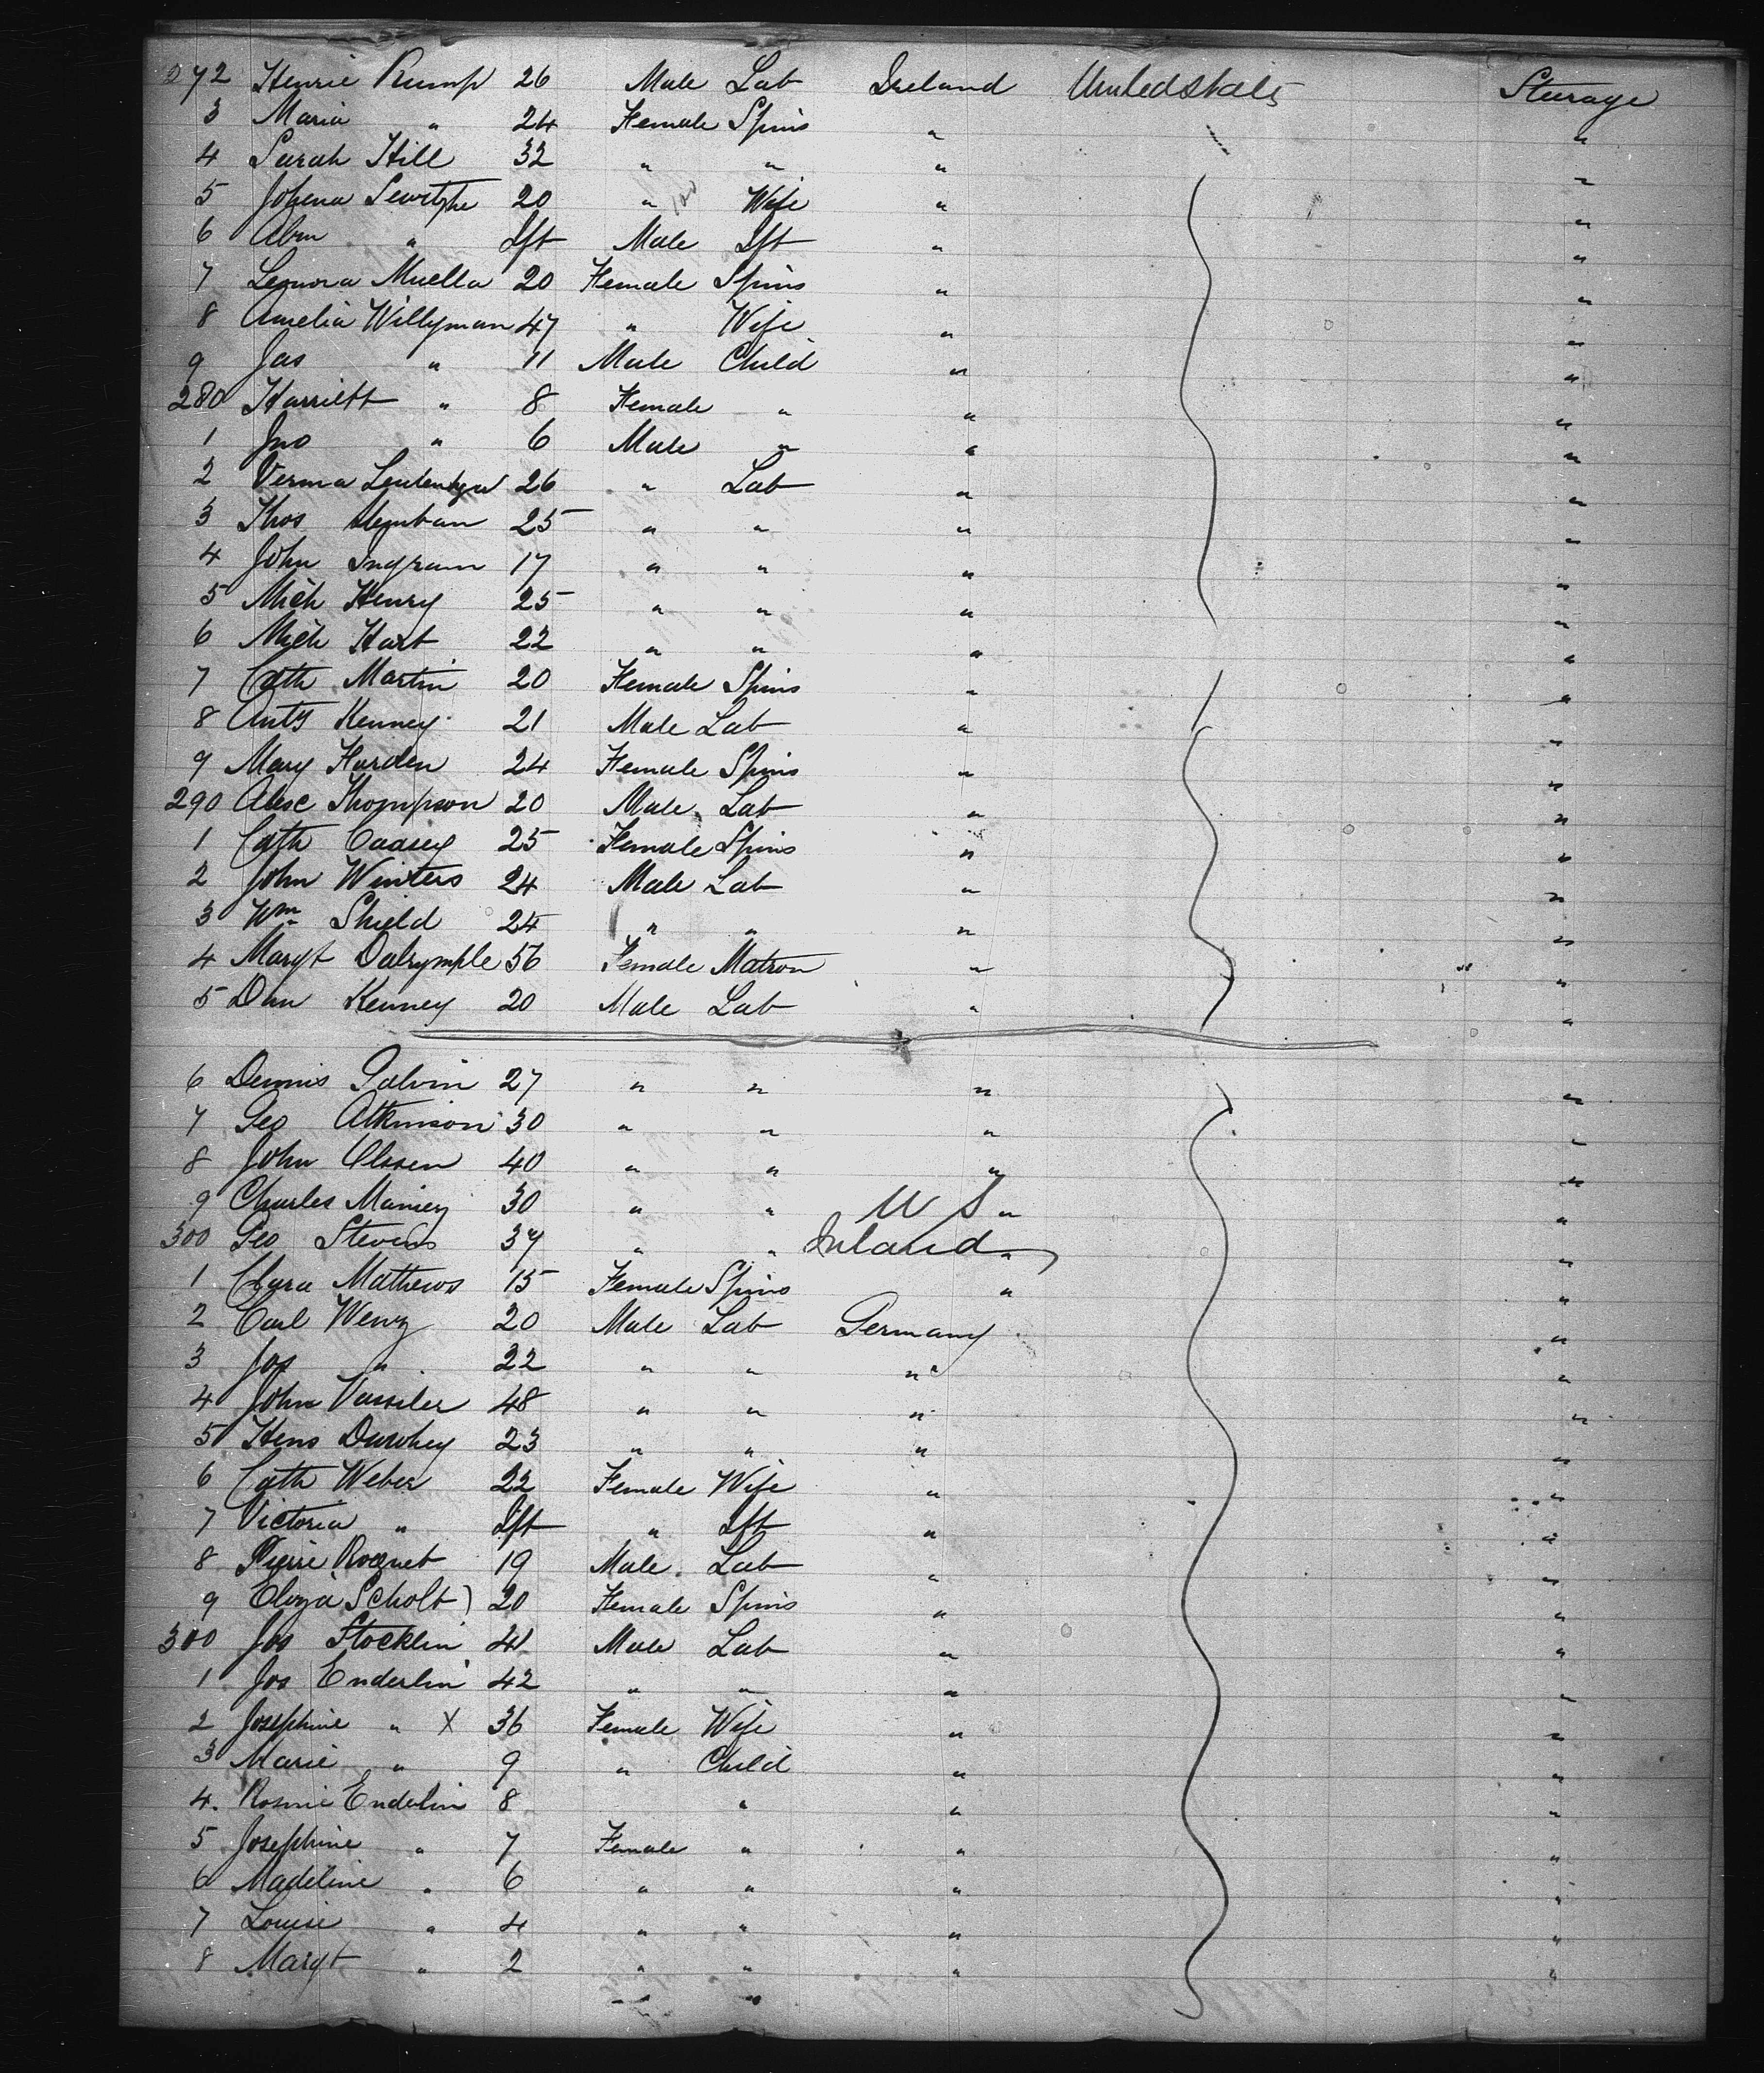 272 Henrie Rump 26 Male Lab Ireland United States Steerage
3 Maria " 24 Female Spins " "
4 Sarah Hill 32 " " " "
5 Johena 20 " Wife " "
6 Abm " Ift Male Ift " "
7 Leonora Muella 20 Female Spins " "
8 Amelia Willyman 47 " Wife " "
9 Jas " 11 Male Child " "
280 Harriett " 8 Female " " "
1 Jno " 6 Male " " "
2 Verma 26 " Lab " "
3 Thos 25 " " " "
4 John Ingram 17 " " " "
5 Mich Henry 25 " " " "
6 Mich Hart 22 " " " "
7 Cath Martin 20 Female Spins " "
8 Anty Kenney 21 Male Lab " "
9 Mary Harden 24 Female Spins " "
290 Alex Thompson 20 Male Lab " "
1 Cath Caasey 25 Female Spins " "
2 John Winters 24 Male Lab " "
3 Wm Shield 24 " " " "
4 Margt Dalrymple 56 Female Matron " "
5 Dan Kenney 20 Male Lab " "
6 Dennis Galvin 27 " " " "
7 Geo Atkinson 30 " " " "
8 John Olssen 40 " " " "
9 Charles 30 " " U S " "
300 Geo Stevens 37 " " Ireland " "
1 Clara Mathews 15 Female Spins " "
2 Carl Wenz 20 Male Lab Germany "
3 Jos " 22 " " " "
4 John Vassiler 48 " " " "
5 Hens 23 " " " "
6 Cath Weber 22 Female Wife " "
7 Victoria " Ift " Ift " "
8 Pierre Roquet 19 Male Lab " "
9 Eloya (Scholt) 20 Female Spins " "
300 Jos Stocklin 41 Male Lab " "
1 Jos Enderlin 42 " " " "
2 Josephine " X 36 Female Wife " "
3 Marie " 9 " Child " "
4. Rosine Enderlin 8 " " "
5 Josephine " 7 Female " " "
6 Madeline " 6 " " " "
7 Louise " 4 " " " "
8 Margt " 2 " " " "
" "